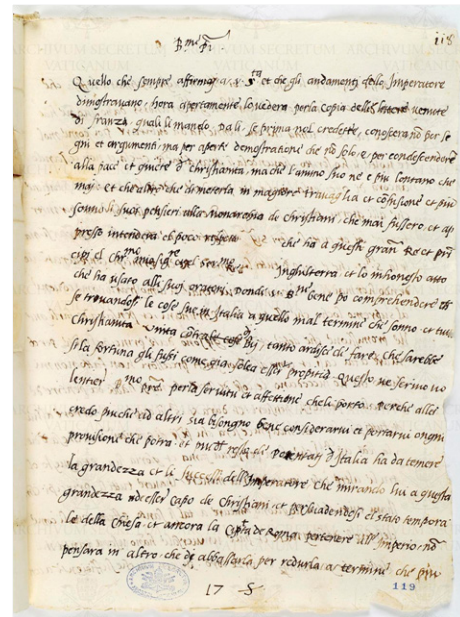 118
B.me P.r
Quello che sempre affirmai a v. S.tà et che gli andamenti dello Imperatore
dimostravano, hora apertamente lo vederà per la Copia delle lettere venute
di franza, quali li mando, Da li se prima nol credette, conoscerà nò per se
gni et argumenti, ma per aperte demostratione che nò solo è per condescendere
alla pace et quiete d christianità, ma che l'animo suo ne è più lontano che
mai, et che altro che di meterla in magiore travaglia et confusione et più
sonno li suoi pensieri alla Monarchia de christiani, che mai fussero, et ap
presso intenderà el poco respetto che ha a questi gran Re et prin
cipi el chr.mo mio sig.re et el ser.mo Re Inghilterra et lo inhonesto atto
che ha usato alli suoi oratori, Donde v. B.ne bene pò comprendere
se trovandosi le cose sue in Italia a quello mal termine che sonno et tu
christianità unita tanto ardisce di fare, che sarebbe
si la fortuna gli fussi come già solea esser propitia Questo ne scrivo vo
lentier per la servitù et affettione che li porto. Perche a lei
credo più che ad altri sia bisongno bene considerarvi et portarvi ongni
provisione che potrà et Potentati d'Italia ha da temere
la grandezza et li successi dell'Imperatore che mirando lui a questa
grandezza nd esser capo de Christiani, et el stato tempora
le della chiesa et ancora la Città de Roma pertenere all'Imperio, nò
pensarà in altro che di abbassarla per redurla a termine che più
17 S
119